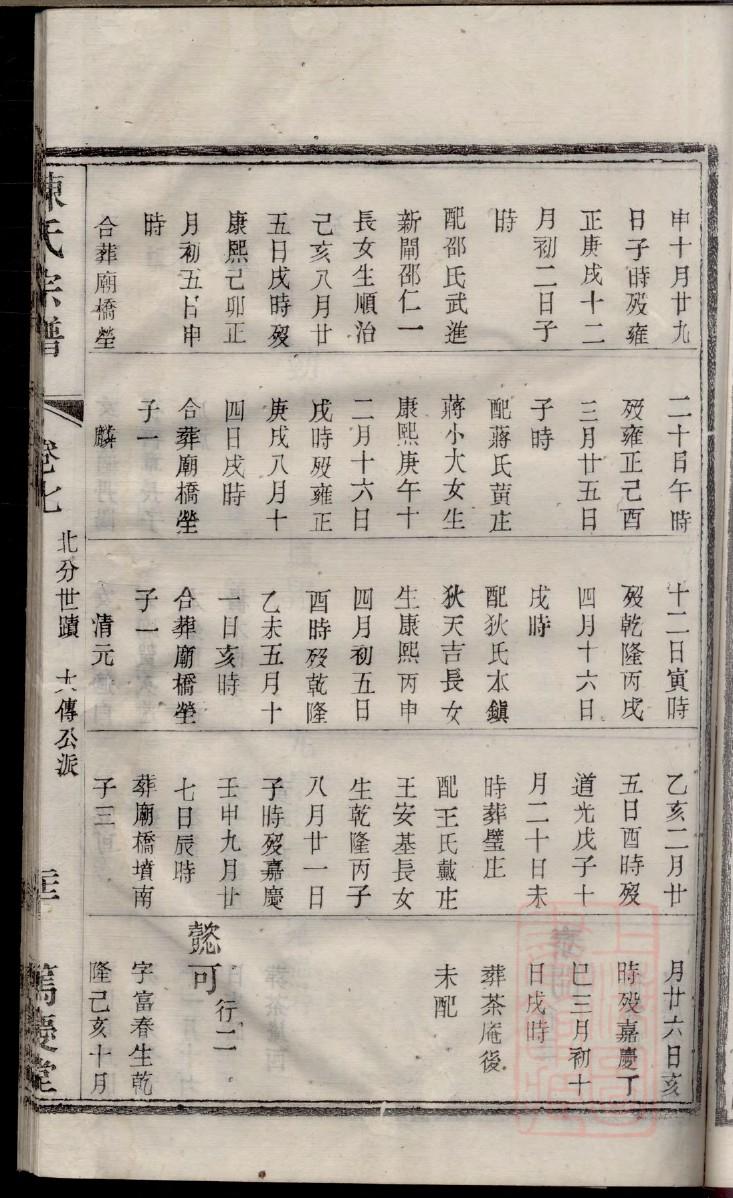 申十月廿九
日子時歿雍
正庚戌十二
月初二日子
時
配邵氏武進
新閘邵仁一
長女生順治
己亥八月廿
五日戌時歿
康熙己卯正
月初五日申
時
合葬廟橋塋
二十日午時
歿雍正己酉
三月廿五日
子時
配蔣氏黃庄
蔣小大女生
康熙庚午十
二月十六日
戌時歿雍正
庚戌八月十
四日戌時
合葬廟橋塋
子一
麟
十二日寅時
歿乾隆丙戌
四月十六日
戌時
配狄氏本鎮
狄天吉長女
生康熙丙申
四月初五日
酉時歿乾隆
乙未五月十
一日亥時
合葬廟橋塋
子一
清元
乙亥二月廿
五日酉時歿
道光戊子十
月二十日未
時葬璧庄
配王氏戴庄
王安基長女
生乾隆丙子
八月廿一日
子時歿嘉慶
壬申九月廿
七日辰時
葬廟橋墳南
子三
月廿六日亥
時歿嘉慶丁
巳三月初十
日戌時
葬茶庵後
未配
懿可 行二
字富春生乾
隆己亥十月
陳氏宗譜 卷七 北分世蹟 大傳公派 篤慶堂